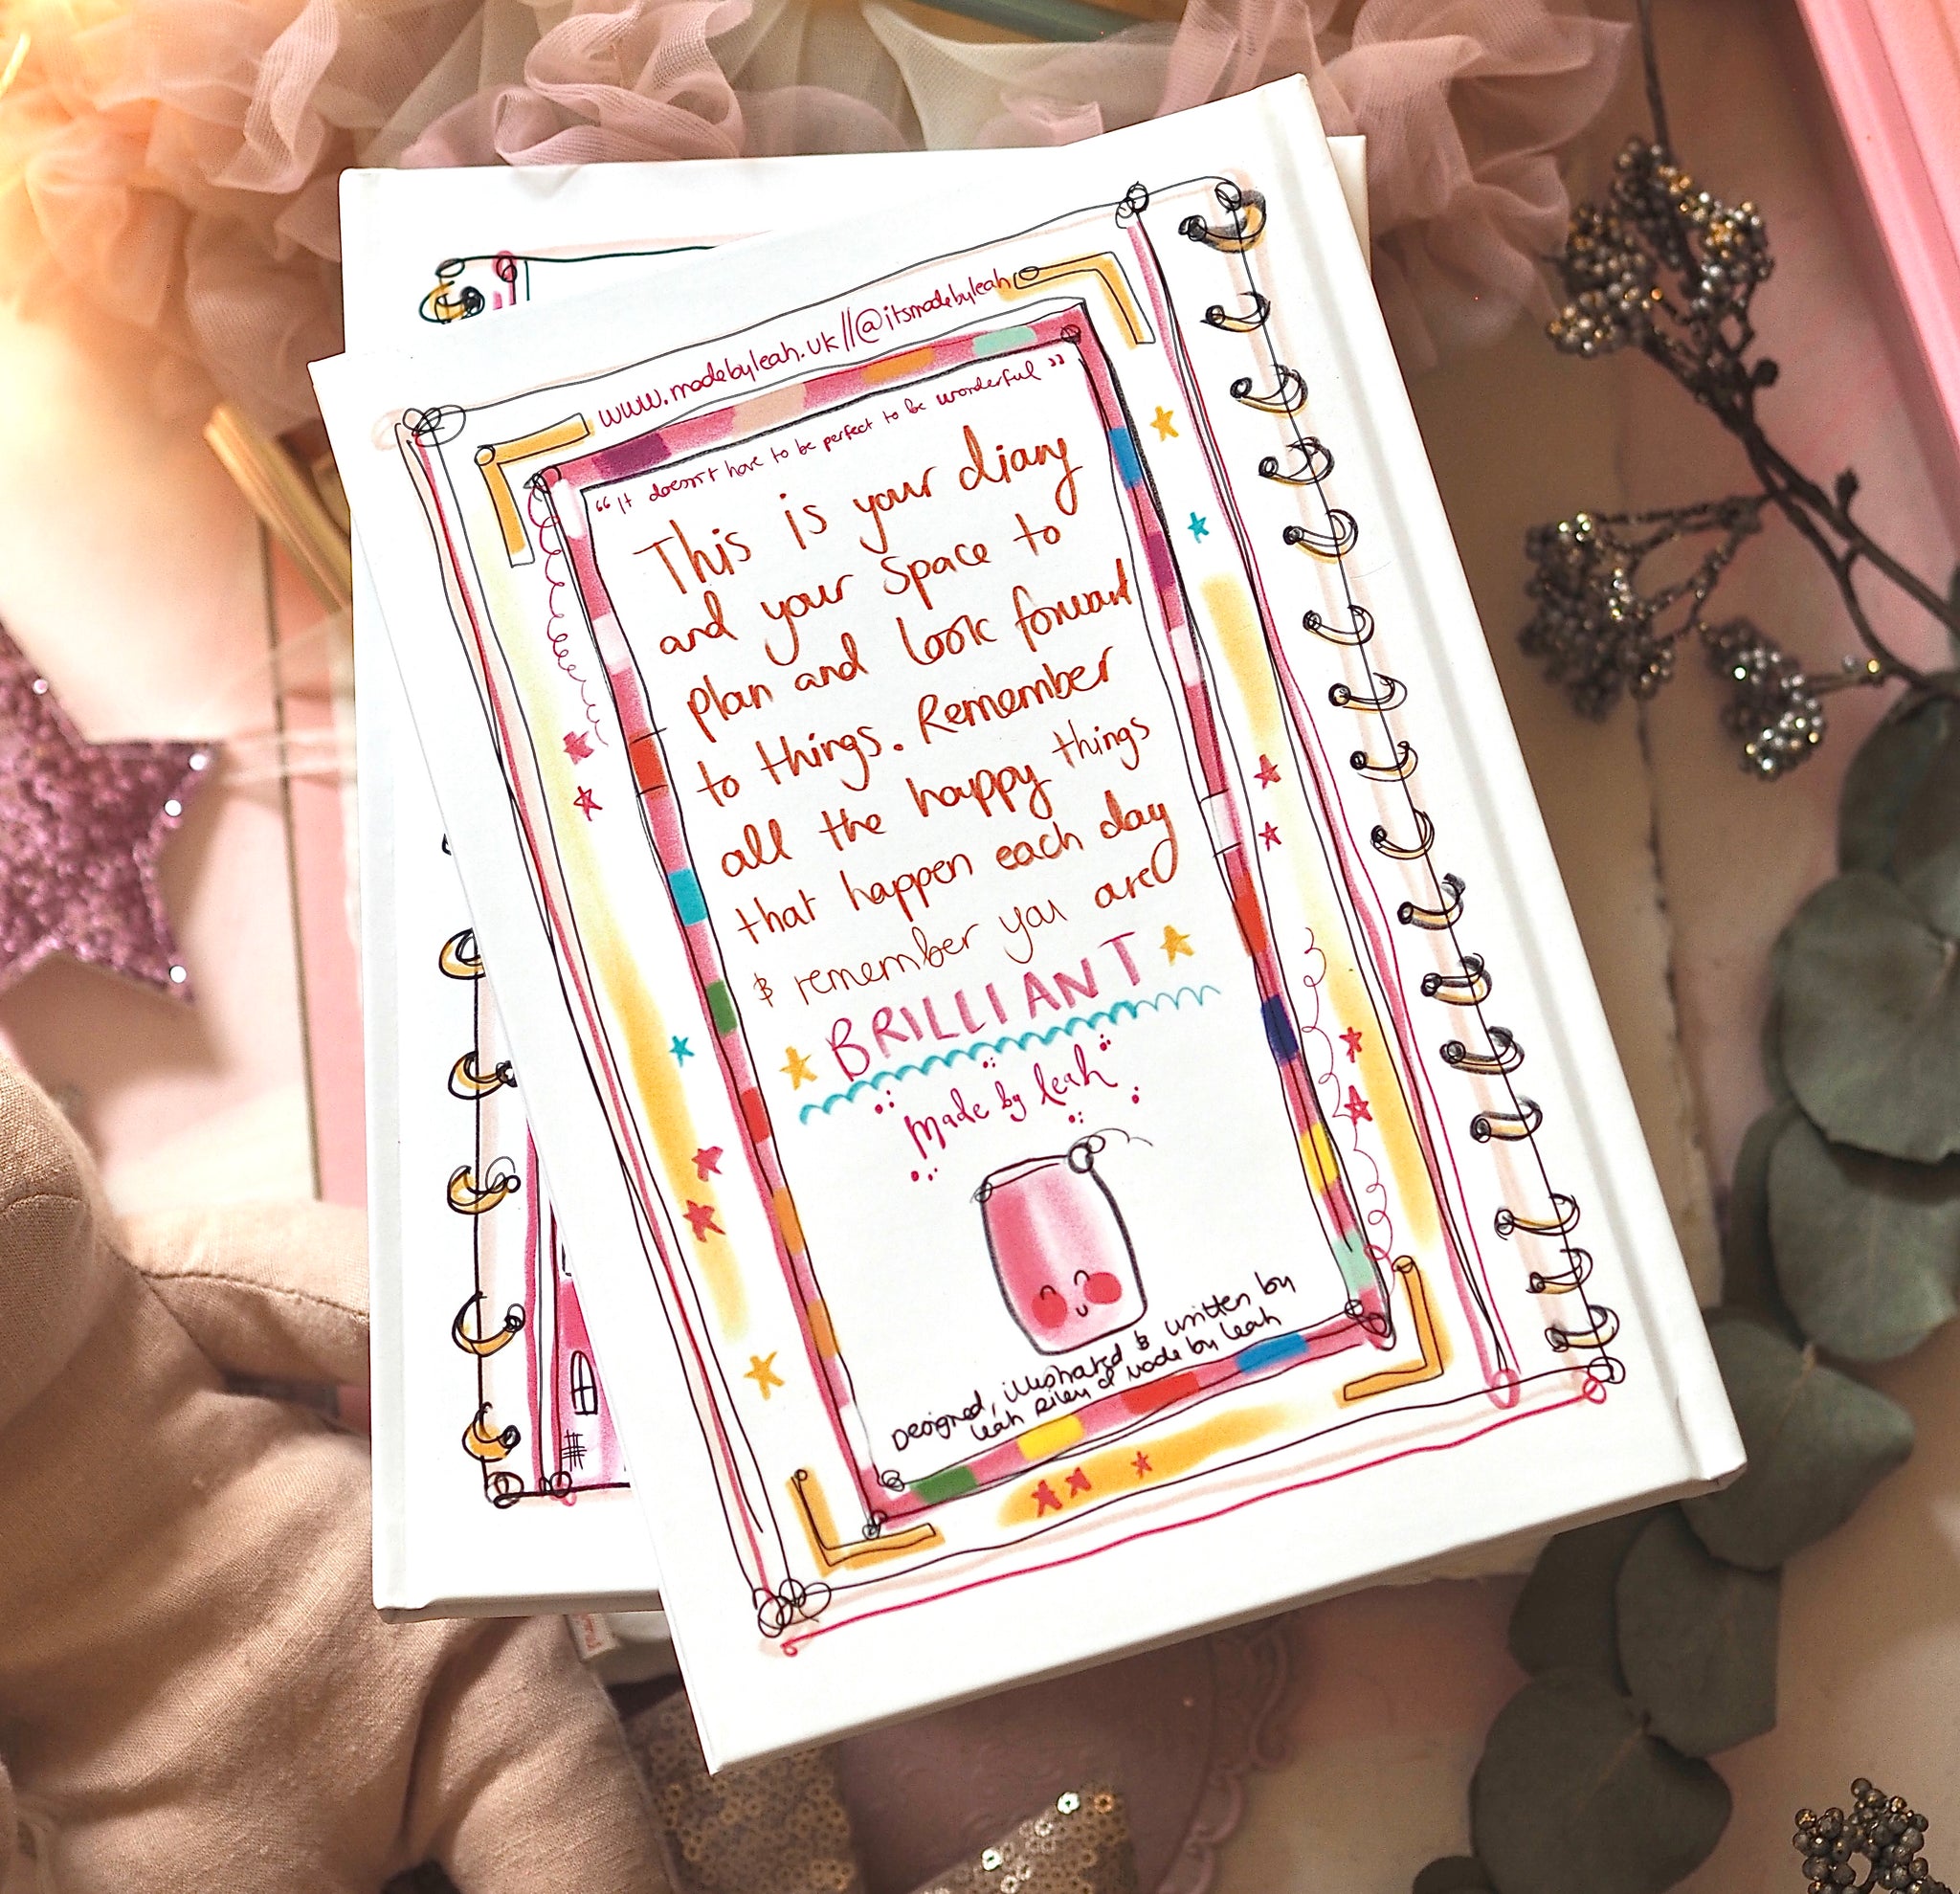 www.madebyleah.uk//@itsmadebyleah
"It doesn't have to be perfect to be wonderful"
This is your diary
and your space to
plan and look forward
to things. Remember
all the happy things
that happen each day
& remember you are
BRILLIANT
Made by leah
Designed, illustrated & written by
Leah Riley of Made by Leah